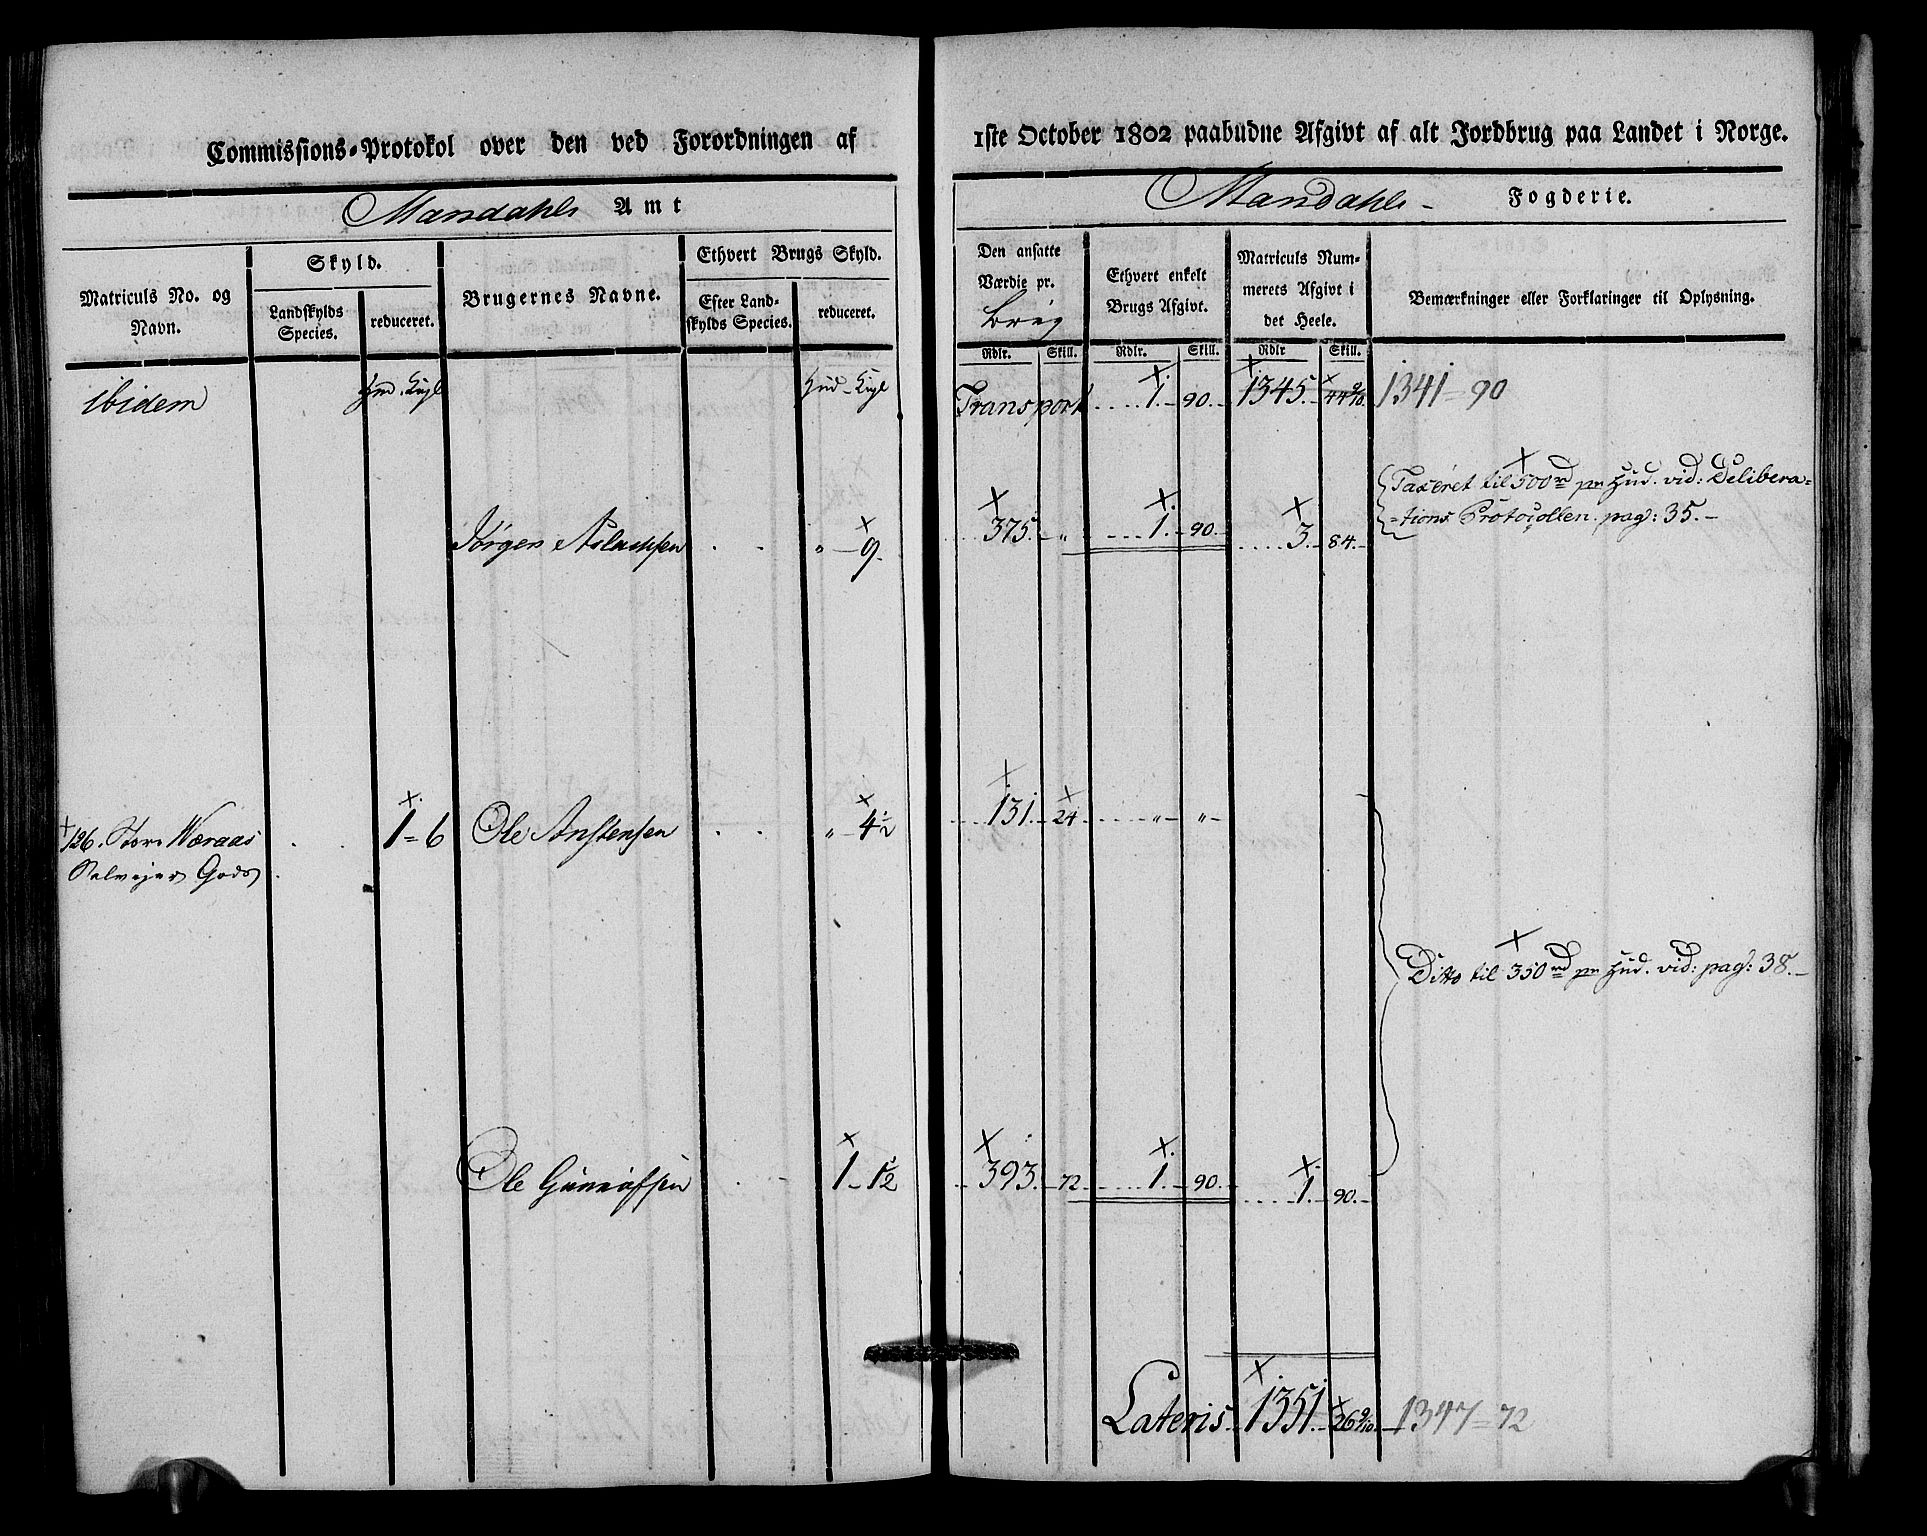 Commissions-Protokol over den ved Forordningen af
1ste October 1802 paabudne Afgivt af alt Jordbrug paa Landet i Norge.
Mandahls Amt
Mandahls - Fogderie.
Matriculs No. og Navn.
Skyld.
Landskylds Species.
reduceret.
Brugernes Navne.
Ethvert Brugs Skyld.
Efter Land-
skylds Species.
reduceret.
Den ansatte
Værdie pr.
Brug
Ethvert enkelt
Brugs Afgivt.
Matriculs Num-
merets Afgivt i
det Heele.
Bemærkninger eller Forklaringer til Oplysning.
Rdlr. Skill. Rdlr. Skill. Rdlr Skill.
ibidem Hud. Kigl Hud. Kigl Transport 1. 90. 1345. 44 9/10. 1341=90
Jørgen Aslachsen " 9. 375. " 1. 90. 3. 84.
Taxeret til 500rd pr Hud. vid: Delibera-
tions Protocollen. pag: 35.-
126. Store Weraas 1=6 Ole Anstensen " 4½ 131. 24 " "
Salvejer Gods
Ditto til 350rd pr Hud. vid: pag: 38.-
Ole Gunnufsen 1 - 1½ 393. 72 1. 90. 1. 90.
Lateris. 1351. 26 9/10. 1347=72